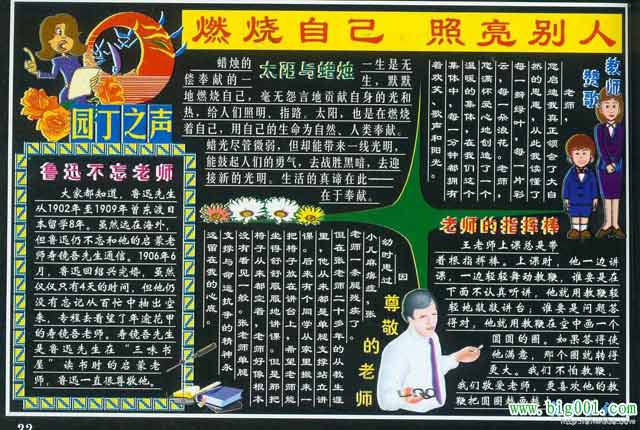 燃烧自己 照亮别人
园丁之声
太阳与蜡烛
蜡烛的一生是无
偿奉献的一生，默默
地燃烧自己，毫无怨言地贡献自身的光和
热，给人们照明、指路。太阳，也是在燃烧
着自己，用自己的生命为自然、人类奉献。
蜡光尽管微弱，但却能带来一线光明，
能鼓起人们的勇气，去战胜黑暗，去迎
接新的光明。生活的真谛在此——
在于奉献。
教师赞歌
老师，
您启迪我真正领会了大自
然的恩惠，从此我读懂了
每一瓣绿叶，每一片彩
云，每一朵浪花。老师，
您满怀爱心地创造了一个
温暖的集体，在我们这个
集体中，每一分钟都拥有
着欢笑、歌声和阳光。
鲁迅不忘老师
大家都知道，鲁迅先生
从1902年至1909年曾东渡日
本留学8年。虽然远在海外，
但鲁迅仍不忘和他的启蒙老
师寿镜吾先生通信。1906年6
月，鲁迅回绍兴完婚，虽然
仅仅只有4天的时间，但他仍
没有忘记从百忙中抽出空
来，专程去看望了年逾花甲
的寿镜吾老师。寿镜吾先生
是鲁迅先生在“三味书
屋”读书时的启蒙老
师，鲁迅一直很尊敬他。
尊敬的老师
因
幼时患过
小儿麻痹症，张
老师一条腿残疾了。
但在张老师二十多年的从教生涯
里，他从来都是单腿支撑站立讲
课。后来有个同学从家里搬来一
把椅子放在讲台上，希望老师能
坐得舒舒服服地讲课。但是那把
椅子从来都空着，老师好像根本
没有看见一般。张老师单腿
支撑与命运抗争的精神永
远留在我的心底。
老师的指挥棒
王老师上课总是带
着根指挥棒。上课时，他一边讲
课，一边轻轻舞动教鞭，谁要是在
下面不认真听讲，他就用教鞭轻
轻地敲敲讲台；谁要是问题答
得对，他就用教鞭在空中画一个
圆圆的圈。如果答得使
他满意，那个圈就转得
更大。我们不怕教鞭，
我们敬爱老师，更喜欢他的教
鞭把圆圈越画越
www.big001.com
22